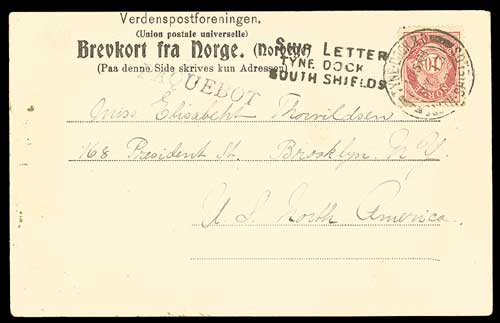 Verdenspostforeningen.
(Union postale universelle)
Brevkort fra Norge. (Norvège)
(Paa denne Side skrives kun Adressen)
SHIP LETTER
TYNE DOCK
SOUTH SHIELDS
PAQUEBOT
Miss Elisabeht Thorvildsen
168 President St. Brooklyn. N.Y.
U. S. North America.